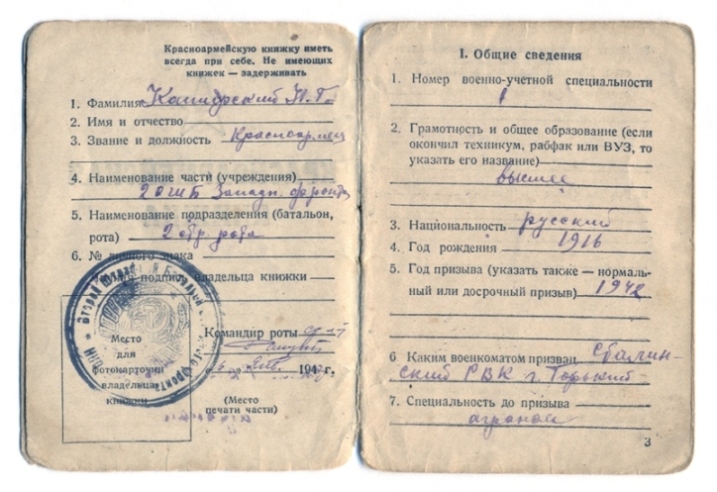 Красноармейскую книжку иметь
всегда при себе. Не имеющих
книжек — задерживать
1. Фамилия Каширский Н. Г.
2. Имя и отчество
3. Звание и должность Красноармеец
4. Наименование части (учреждения)
2 ОШБ Западн. фронта
5. Наименование подразделения (батальон,
рота) 2 стр. рота
6. № личного знака
Личная подпись владельца книжки
Командир роты
194 г.
Место
для
фотокарточки
владельца
книжки
(Место
печати части)
I. Общие сведения
1. Номер военно-учетной специальности
1
2. Грамотность и общее образование (если
окончил техникум, рабфак или ВУЗ, то
указать его название)
высшее
3. Национальность русский
4. Год рождения 1916
5. Год призыва (указать также — нормаль-
ный или досрочный призыв) 1942
6 Каким военкоматом призван Сталин-
ский РВК г. Горький
7. Специальность до призыва
агроном
3